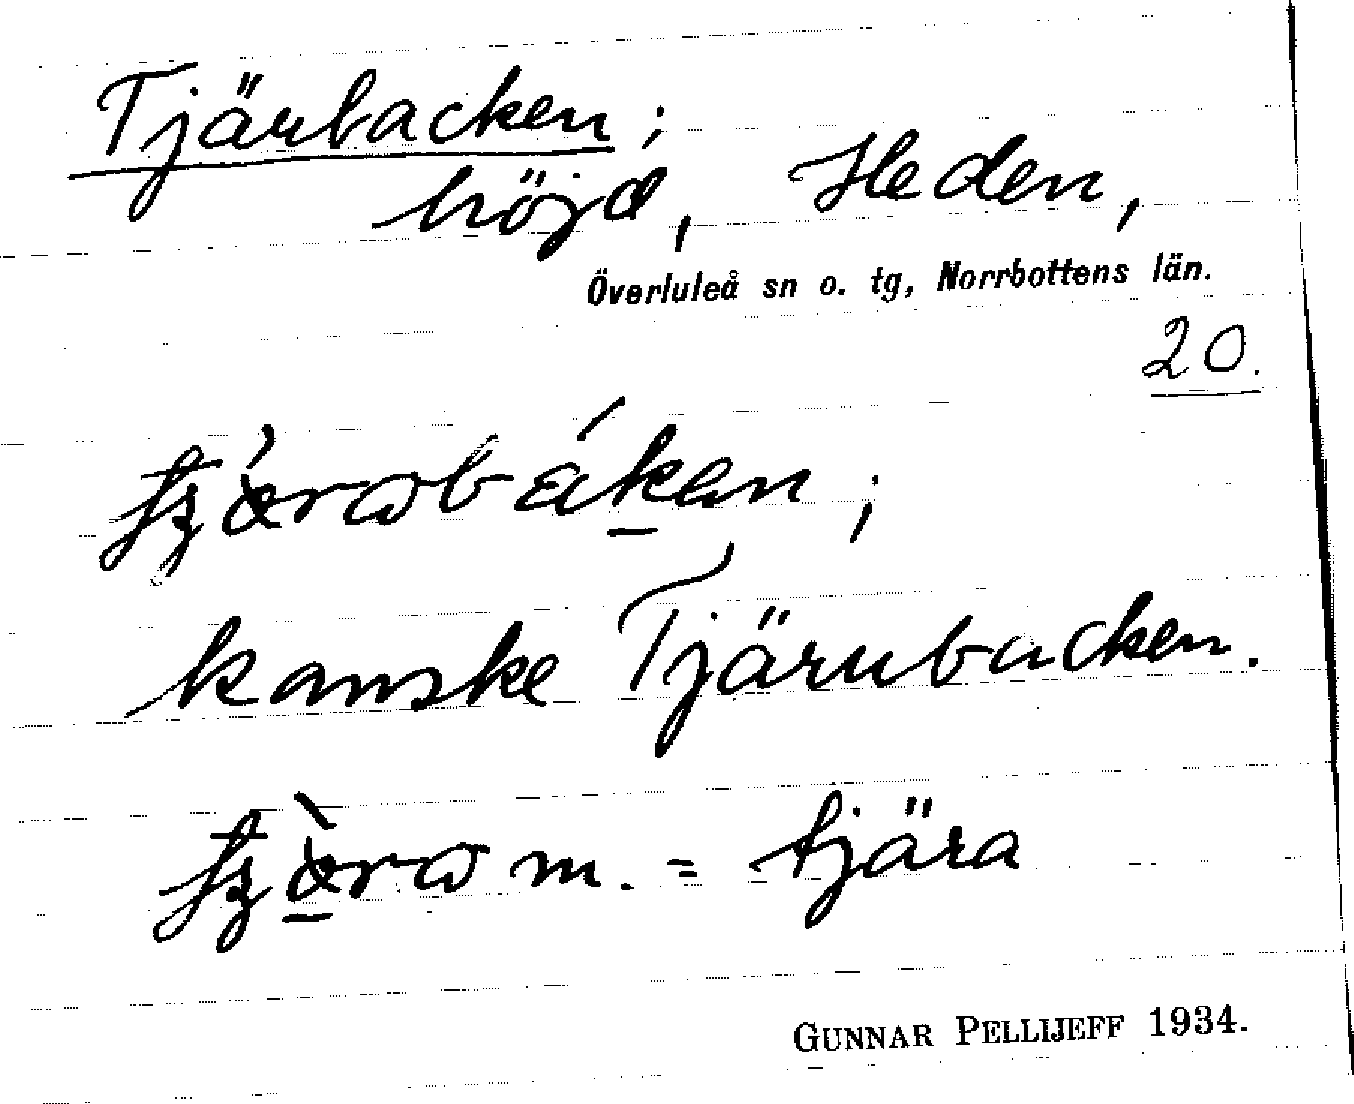 Tjärbacken;
höjd, Heden,
Överluleå sn o. tg, Norrbottens län.
20.
kanske Tjärubacken.
m. = tjära
GUNNAR PELLIJEFF 1934.